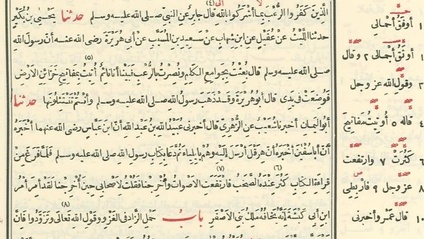 الذين كفروا الرعب بما أشركوا بالله قال جابر عن النبي صلى الله عليه وسلم حدثنا يحيى بن بكير
حدثنا الليث عن عقيل عن ابن شهاب عن سعيد بن المسيب عن أبي هريرة رضي الله عنه أن رسول الله
صلى الله عليه وسلم قال بعثت بجوامع الكلم ونصرت بالرعب فبينا أنا نائم أتيت بمفاتيح خزائن الأرض
فوضعت في يدي قال أبو هريرة وقد ذهب رسول الله صلى الله عليه وسلم وأنتم تنتثلونها حدثنا
أبو اليمان أخبرنا شعيب عن الزهري قال أخبرني عبيد الله بن عبد الله أن ابن عباس رضي الله عنهما أخبره
أن أبا سفيان أخبره أن هرقل أرسل إليه وهم بإيلياء ثم دعا بكتاب رسول الله صلى الله عليه وسلم فلما فرغ من
قراءة الكتاب كثر عنده الصخب فارتفعت الأصوات وأخرجنا فقلت لأصحابي حين أخرجنا لقد أمر أمر
ابن أبي كبشة إنه يخافه ملك بني الأصفر باب حمل الزاد في الغزو وقول الله تعالى وتزودوا فان
١ أوثق أجمالي
٢ أوثق أجمالي ٣ وقال
وقول الله عز وجل
٤ قاله ٥ أوتيت مفاتيح
٦ كثرت ٧ وارتفعت
٨ عز وجل
١٠ قال عمرو وأخبرني